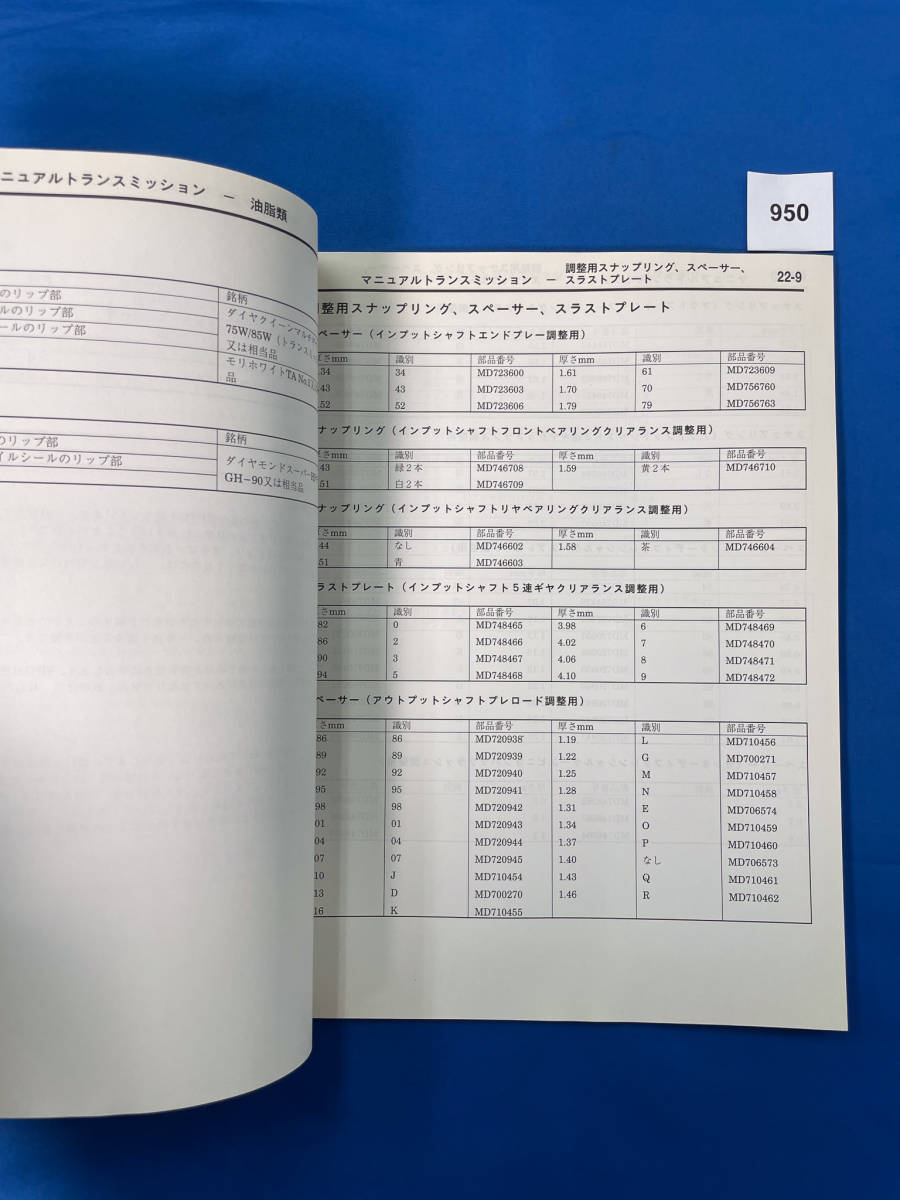 950
ニュアルトランスミッション － 油脂類
のリップ部
ルのリップ部
ールのリップ部
銘柄
ダイヤクイーンマルチ
75W/85W（トランス
又は相当品
モリホワイトTA No.
品
のリップ部
イルシールのリップ部
銘柄
ダイヤモンドスーパー
GH-90又は相当品
マニュアルトランスミッション － 調整用スナップリング、スペーサー、スラストプレート 22-9
整用スナップリング、スペーサー、スラストプレート
ペーサー（インプットシャフトエンドプレー調整用）
さmm 識別 部品番号 厚さmm 識別 部品番号
.34 34 MD723600 1.61 61 MD723609
.43 43 MD723603 1.70 70 MD756760
.52 52 MD723606 1.79 79 MD756763
ナップリング（インプットシャフトフロントベアリングクリアランス調整用）
さmm 識別 部品番号 厚さmm 識別 部品番号
43 緑2本 MD746708 1.59 黄2本 MD746710
51 白2本 MD746709
ナップリング（インプットシャフトリヤベアリングクリアランス調整用）
さmm 識別 部品番号 厚さmm 識別 部品番号
44 なし MD746602 1.58 茶 MD746604
51 青 MD746603
ラストプレート（インプットシャフト5速ギヤクリアランス調整用）
さmm 識別 部品番号 厚さmm 識別 部品番号
82 0 MD748465 3.98 6 MD748469
86 2 MD748466 4.02 7 MD748470
90 3 MD748467 4.06 8 MD748471
94 5 MD748468 4.10 9 MD748472
ペーサー（アウトプットシャフトプレロード調整用）
さmm 識別 部品番号 厚さmm 識別 部品番号
86 86 MD720938 1.19 L MD710456
89 89 MD720939 1.22 G MD700271
92 92 MD720940 1.25 M MD710457
95 95 MD720941 1.28 N MD710458
98 98 MD720942 1.31 E MD706574
01 01 MD720943 1.34 O MD710459
04 04 MD720944 1.37 P MD710460
07 07 MD720945 1.40 なし MD706573
10 J MD710454 1.43 Q MD710461
13 D MD700270 1.46 R MD710462
16 K MD710455